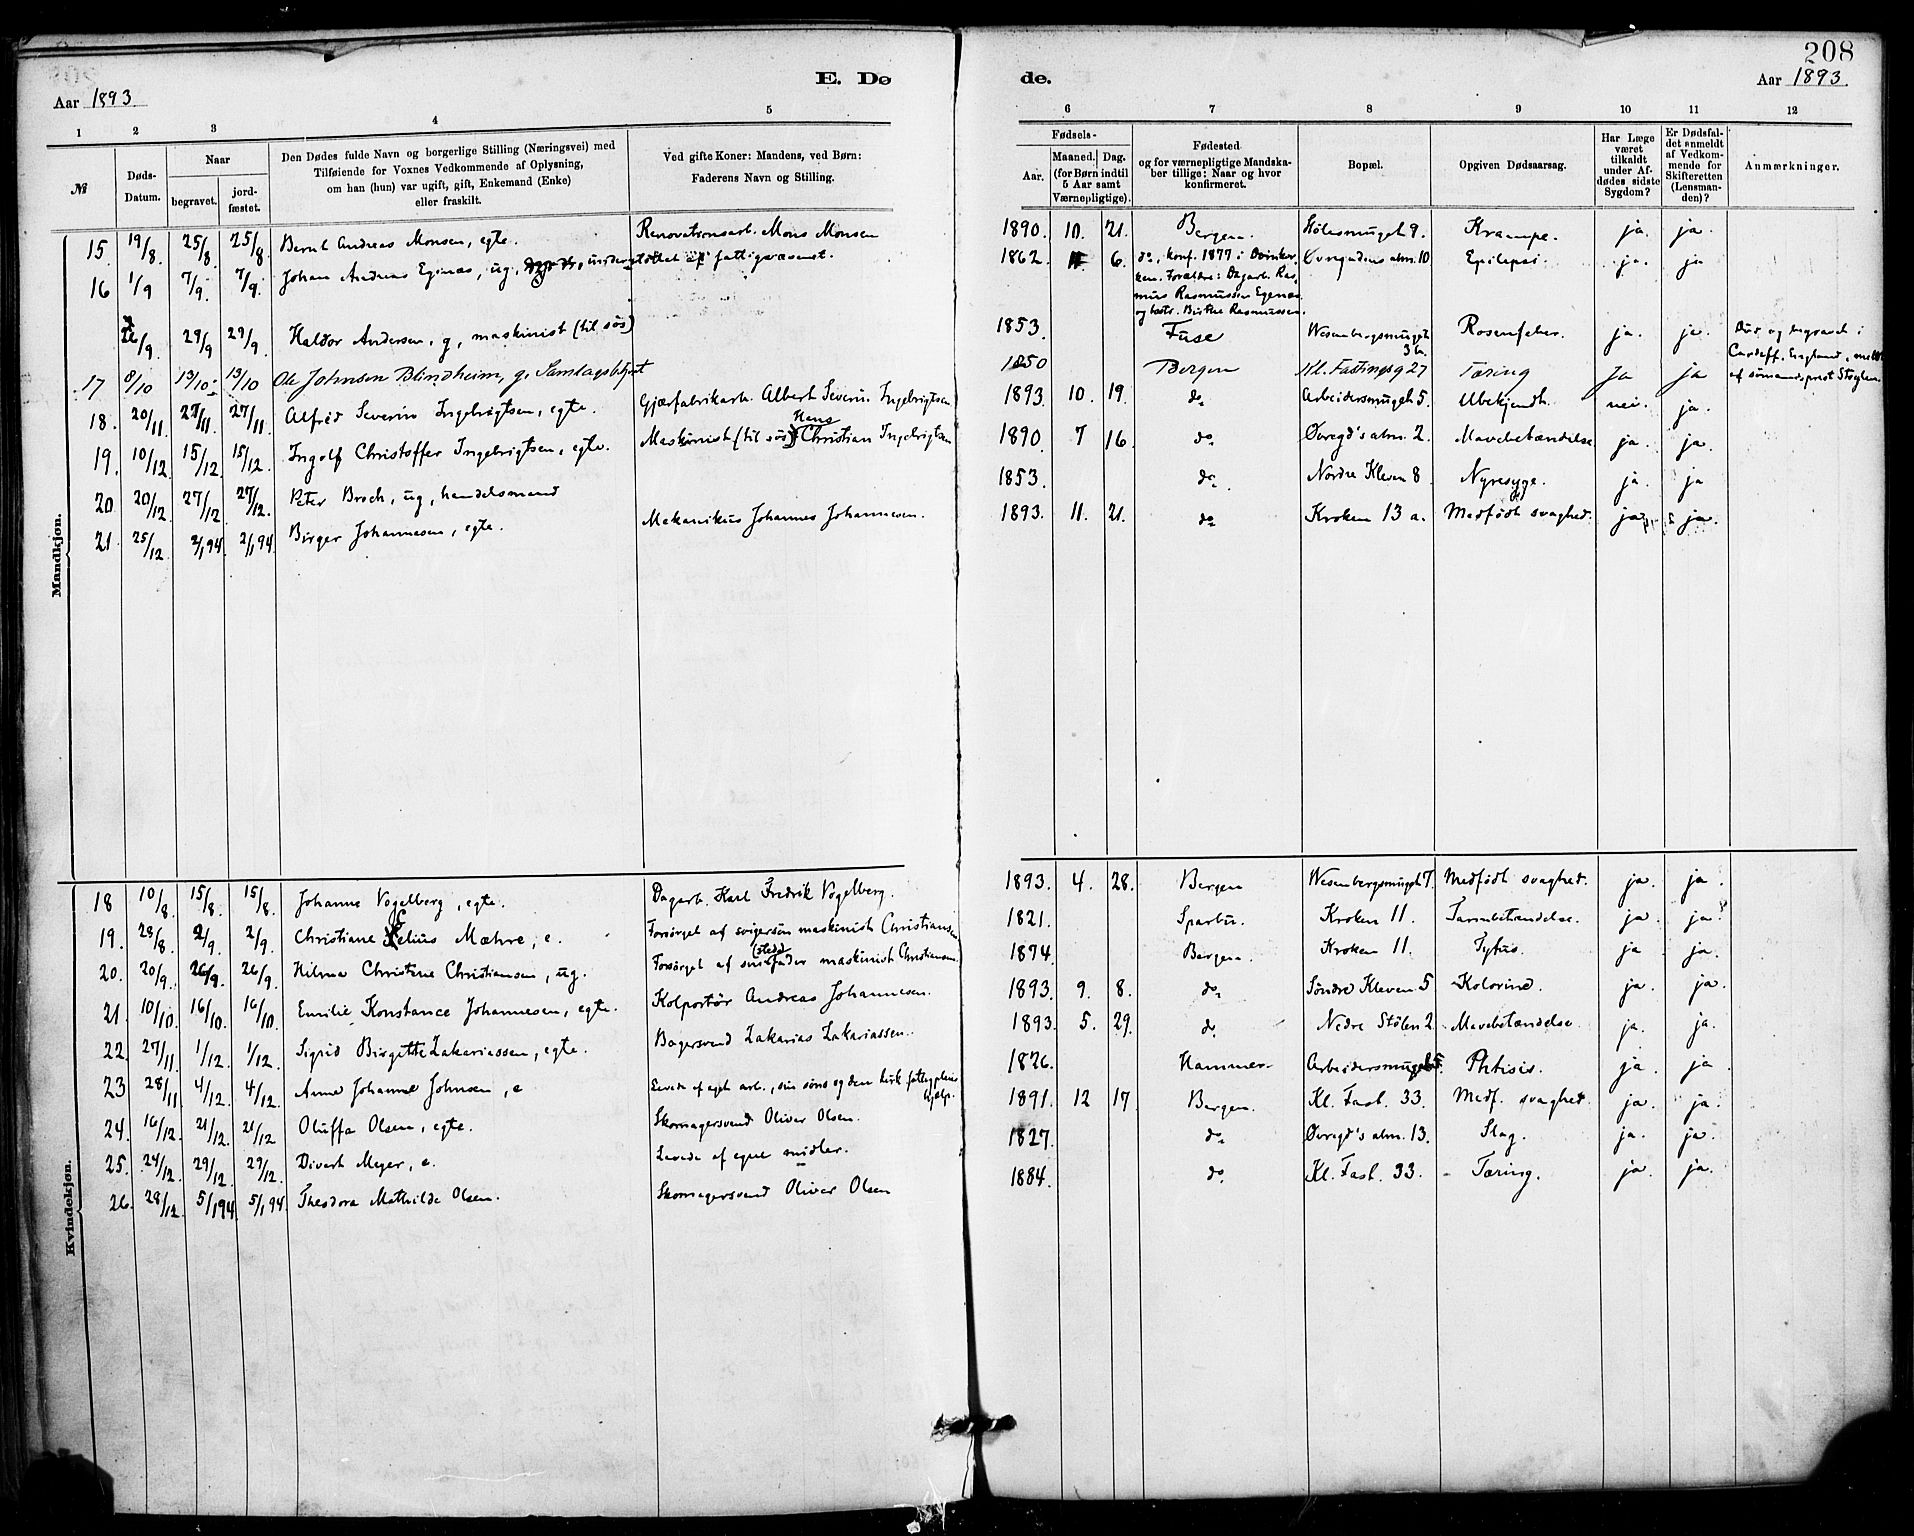 208
Aar 1893.
E. Dø
de.
Aar 1893.
1 2 3 4 5 6 7 8 9 10 11 12
№
Døds-Datum.
Naar
begravet.
jord-fæstet.
Den Dødes fulde Navn og borgerlige Stilling (Næringsvei) med
Tilføiende for Voxnes Vedkommende af Oplysning,
om han (hun) var ugift, gift, Enkemand (Enke)
eller fraskilt.
Ved gifte Koner: Mandens, ved Børn:
Faderens Navn og Stilling.
Fødsels-
Aar.
Maaned. Dag.
(for Børn indtil
5 Aar samt
Værnepligtige).
Fødested
og for værnepligtige Mandska-
ber tillige: Naar og hvor
konfirmeret.
Bopæl.
Opgiven Dødsaarsag.
Har Læge
været
tilkaldt
under Af-
dødes sidste
Sygdom?
Er Dødsfal-
det anmeldt
af Vedkom-
mende for
Skifteretten
(Lensman-
den)?
Anmærkninger.
Mandkjøn.
15. 19/8. 25/8 25/8 Bernt Andreas Monsen, egte. Renovationsarb. Mons Monsen 1890. 10. 21. Bergen. 9. Krampe. ja. ja.
16 1/9 7/9. 7/9. Johan Andreas Eginæs, ug, understøttet af fattigvæsenet. 1862. 6. do, konf. 1877 i Domkir- alm. 10 Epilepsi. ja. ja
ken. Forældre: Dagarb. Ras-
mus Rasmussen Egenæs
og hustr. Birthe Rasmussen.
26/9. 29/9 29/9. Haldor Andersen, g, maskinist (til søs) 1853. Fuse Wesenbergsmuget 3 b. Rosenfeber. ja. ja. Død og begravet i
Cardiff, England, meldt
af sømandsprest
17 8/10 13/10 13/10 Ole Johnsen Blindheim, g. 1850 Bergen Kl. Fastingsg 27 Tæring Ja ja
18. 20/11. 27/11. 27/11. Alfred Severin Ingebrigtsen, egte. Gjærfabrikarb. Albert Severin Ingebrigtsen 1893. 10. 19. do Arbeidersmuget 5. Ubekjendt. nei. ja.
19. 10/12. 15/12 15/12. Ingolf Christoffer Ingebrigtsen, egte. Maskinist (til søs) Hans Christian Ingebrigtsen 1890. 7 16. do Øvregd's alm. 2. Mavebetændelse ja. ja.
20 20/12. 27/12. 27/12. Peter Broch, ug, handelsmand 1853. do. Nordre Kleven 8. Nyresyge. ja. ja
21. 25/12. 2/1 94. 2/1 94. Birger Johannesen, egte. Mekanikus Johannes Johannesen. 1893. 11. 21. do Kroken 13 a. Medfødt svaghed. ja ja.
Kvindekjøn.
18 10/8. 15/8. 15/8. Johanne Vogelberg, egte. Dagarb. Karl Fredrik Vogelberg. 1893. 4. 28. Bergen Wesenbergsmuget 7. Medfødt svaghed. ja. ja.
19. 28/8. 2/9. 2/9. Christiane Celius Mæhre, e. Forsørget af svigersøn maskinist Christiansen 1821. Sparbu. Kroken 11. Tarmbetændelse. ja. ja.
20. 20/9. 26/9. 26/9. Hilma Christine Christiansen, ug. Forsørget af sin (sted) fader maskinist Christiansen. 1874 Bergen. Kroken 11. Tyfus. ja ja.
21. 10/10. 16/10. 16/10 Emilie Konstance Johannesen, egte. Kolportør Andreas Johannesen. 1893. 9. 8. do Søndre Kleven 5 Kolerine. ja. ja.
22. 27/11 1/12. 1/12. Sigrid Birgitte Zakariassen, egte. Bagersvend Zakarias Zakariassen. 1893. 5. 29. do Nedre Stølen 2. Mavebetændelse ja. ja.
23 28/11 4/12. 4/12. Anne Johanne Johnsen, e Levede af eget arb., sin søns og den kirk. fattigpleies hjelp. 1826. Hammer. Arbeidersmuget 5. Phtisis. ja. ja
24. 16/12. 21/12. 21/12 Oluffa Olsen, egte. Skomagersvend Oliver Olsen. 1891. 12 17. Bergen. Kl. Fast. 33. Medf. svaghed. ja. ja.
25. 24/12. 29/12 29/12. Divert Meyer, e. Levede af egne midler. 1827. do Øvregd's alm. 13. Slag. ja. ja.
26. 28/12. 5/1 94. 5/1 94. Theodora Mathilde Olsen. Skomagersvend Oliver Olsen 1884. do. Kl. Fast. 33. Tæring. ja. ja.